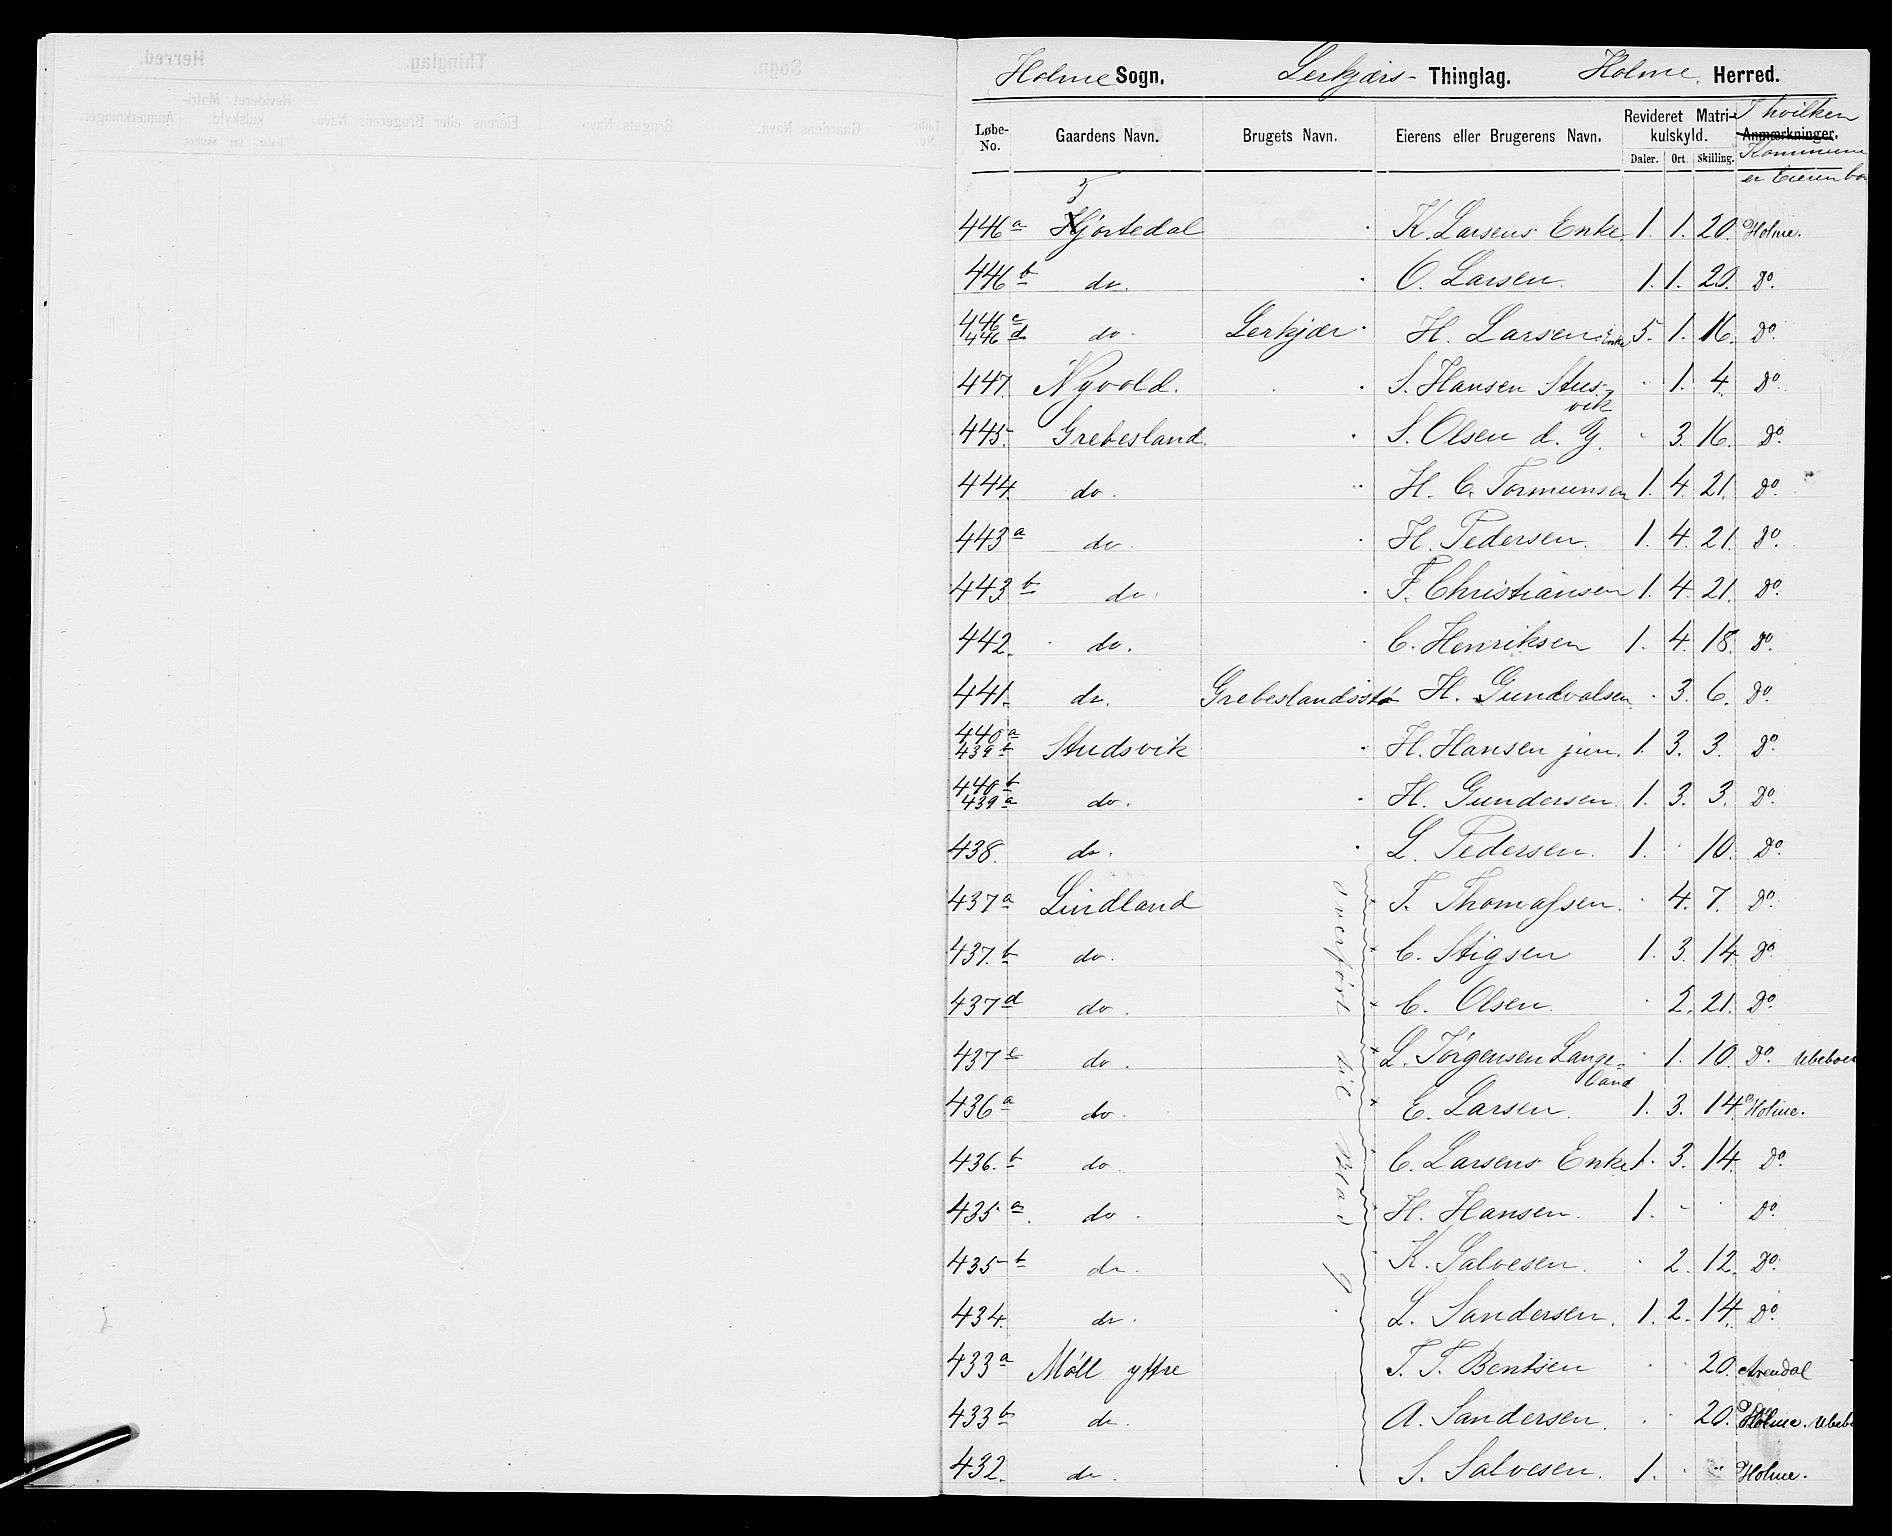 Holme Sogn. Lerkjærs- Thinglag. Holme Herred.
Løbe-No. Gaardens Navn. Brugets Navn. Eierens eller Brugerens Navn. Revideret Matrikulskyld. Daler. Ort. Skilling. Anmærkninger. I hvilken Kommune er Eieren bo
446a Hjortedal K. Larsens Enke 1. 1. 20. Holme.
446b do. O. Larsen. 1. 1. 20. Do.
446c 446d do. Lerkjær H. Larsens Enke 5. 1. 16. Do.
447. Nyvold. S. Hansen Stusvik 1. 4. Do.
445. Grebesland. S. Olsen d. y. 3. 16. Do.
444 do. H. C. Tormunsen 1. 4. 21. Do.
443a do. H. Pedersen. 1. 4. 21. Do.
443b do. F. Christiansen 1. 4. 21. Do.
442. do. C. Henriksen 1. 4. 18. Do.
441. do. Grebeslandsstø H. Gundvalsen 3. 6. Do.
440a 439b Studsvik H. Hansen jun. 1. 3. 3. Do.
440b 439a do. H. Gundersen. 1. 3. 3. Do.
438. do. L. Pedersen. 1. 10. Do.
437a Lindland T. Thomassen. 4. 7. Do.
437.b do. C. Stigsen 1. 3. 14 Do.
437d do. C. Olsen. 2. 21. Do.
437e do. L. Jørgensen Langeland 1. 10. Do. Ubeboet
436a do. E. Larsen. 1. 3. 14. Holme.
436.b do. C. Larsens Enke 1. 3. 14. Do.
435a. do. H. Hansen. 1. - Do.
435b do. K. Salvesen. 2. 12. Do.
434. do. L. Sandersen. 1. 2. 14. Do.
433a Møll yttre T. T. Bentsen 20. Arendal
433b do. A. Sandersen. 20. Holme. Ubebo
432. do. S. Salvesen. 1. Holme.
overført til Blad 9.